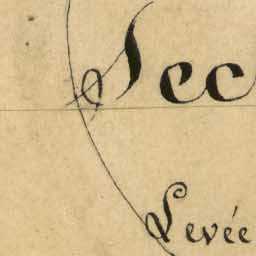 Sec
Levée